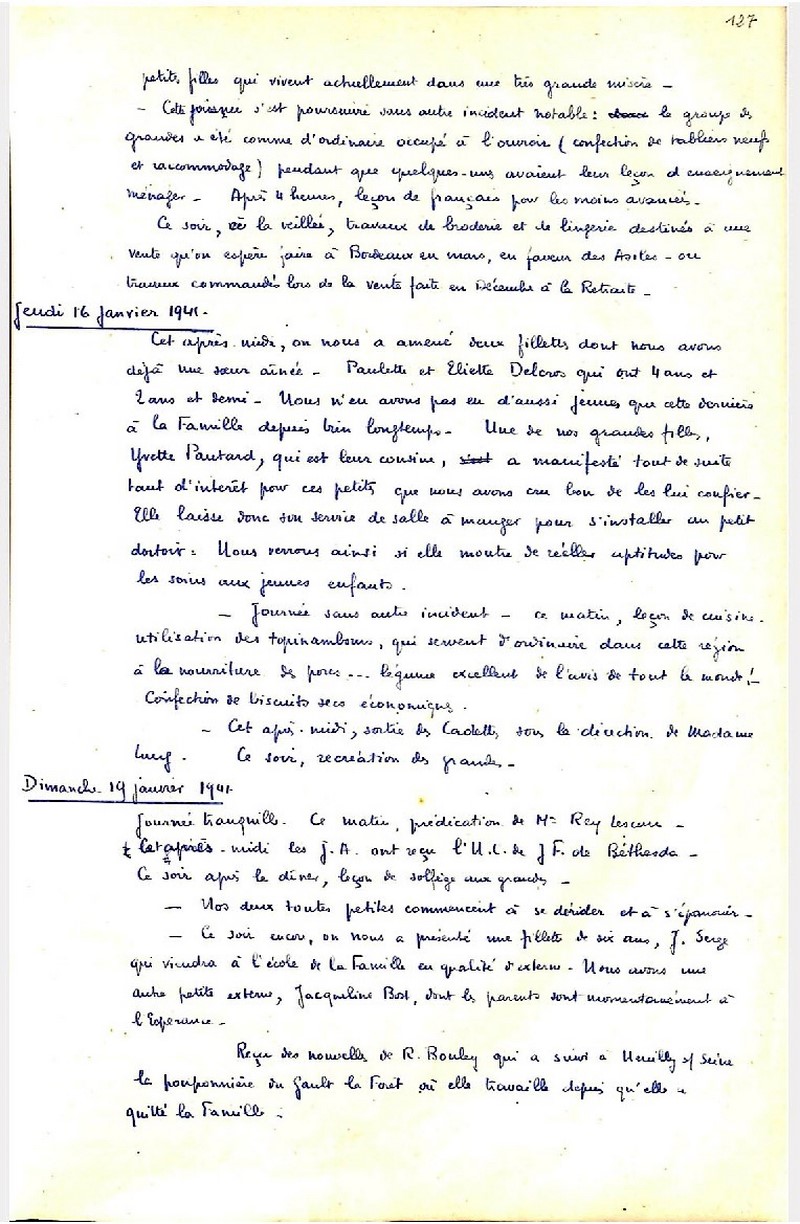 127
petites filles qui vivent actuellement dans une très grande misère –
– Cette journée s'est poursuivie sans autre incident notable : le groupe des
grandes a été comme d'ordinaire occupé à l'ouvroir (confection de tabliers neufs
et raccommodage) pendant que quelques-unes avaient leur leçon d'enseignement
ménager – Après 4 heures, leçon de français pour les moins avancées –
Ce soir, à la veillée, travaux de broderie et de lingerie destinés à une
vente qu'on espère faire à Bordeaux en mars, en faveur des Asiles – ou
travaux commandés lors de la vente faite en Décembre à la Retraite –
Jeudi 16 Janvier 1941.
Cet après-midi, on nous a amené deux fillettes dont nous avons
déjà une sœur aînée – Paulette et Eliette Delcros qui ont 4 ans et
2 ans et demi – Nous n'en avons pas eu d'aussi jeunes que cette dernière
à la Famille depuis bien longtemps – Une de nos grandes filles,
Yvette Pautard, qui est leur cousine, s'est a manifesté tout de suite
tant d'intérêt pour ces petites que nous avons cru bon de les lui confier –
Elle laisse donc son service de salle à manger pour s'installer au petit
dortoir : Nous verrons ainsi si elle montre de réelles aptitudes pour
les soins aux jeunes enfants.
– Journée sans autre incident – ce matin, leçon de cuisine.
utilisation des topinambours, qui servent d'ordinaire dans cette région
à la nourriture des porcs... légume excellent de l'avis de tout le monde ! –
Confection de biscuits secs économiques.
– Cet après-midi, sortie des Cadettes sous la direction de Madame
Lung. Ce soir, recréation des grandes –
Dimanche 19 janvier 1941.
Journée tranquille. Ce matin, prédication de Mr Rey Lescure –
Cet après-midi les J.A. ont reçu l'U.C. de J F. de Béthesda –
Ce soir après le dîner, leçon de solfège aux grandes –
– Nos deux toutes petites commencent à se dérider et à s'épanouir –
– Ce soir encore, on nous a présenté une fillette de six ans, J. Serge
qui viendra à l'école de la Famille en qualité d'externe – Nous avons une
autre petite externe, Jacqueline Bost, dont les parents sont momentanément à
l'Espérance –
Reçu des nouvelles de R. Bouley qui a suivi à Neuilly s/ Seine
la pouponnière du Gault la Forêt où elle travaille depuis qu'elle a
quitté la Famille –